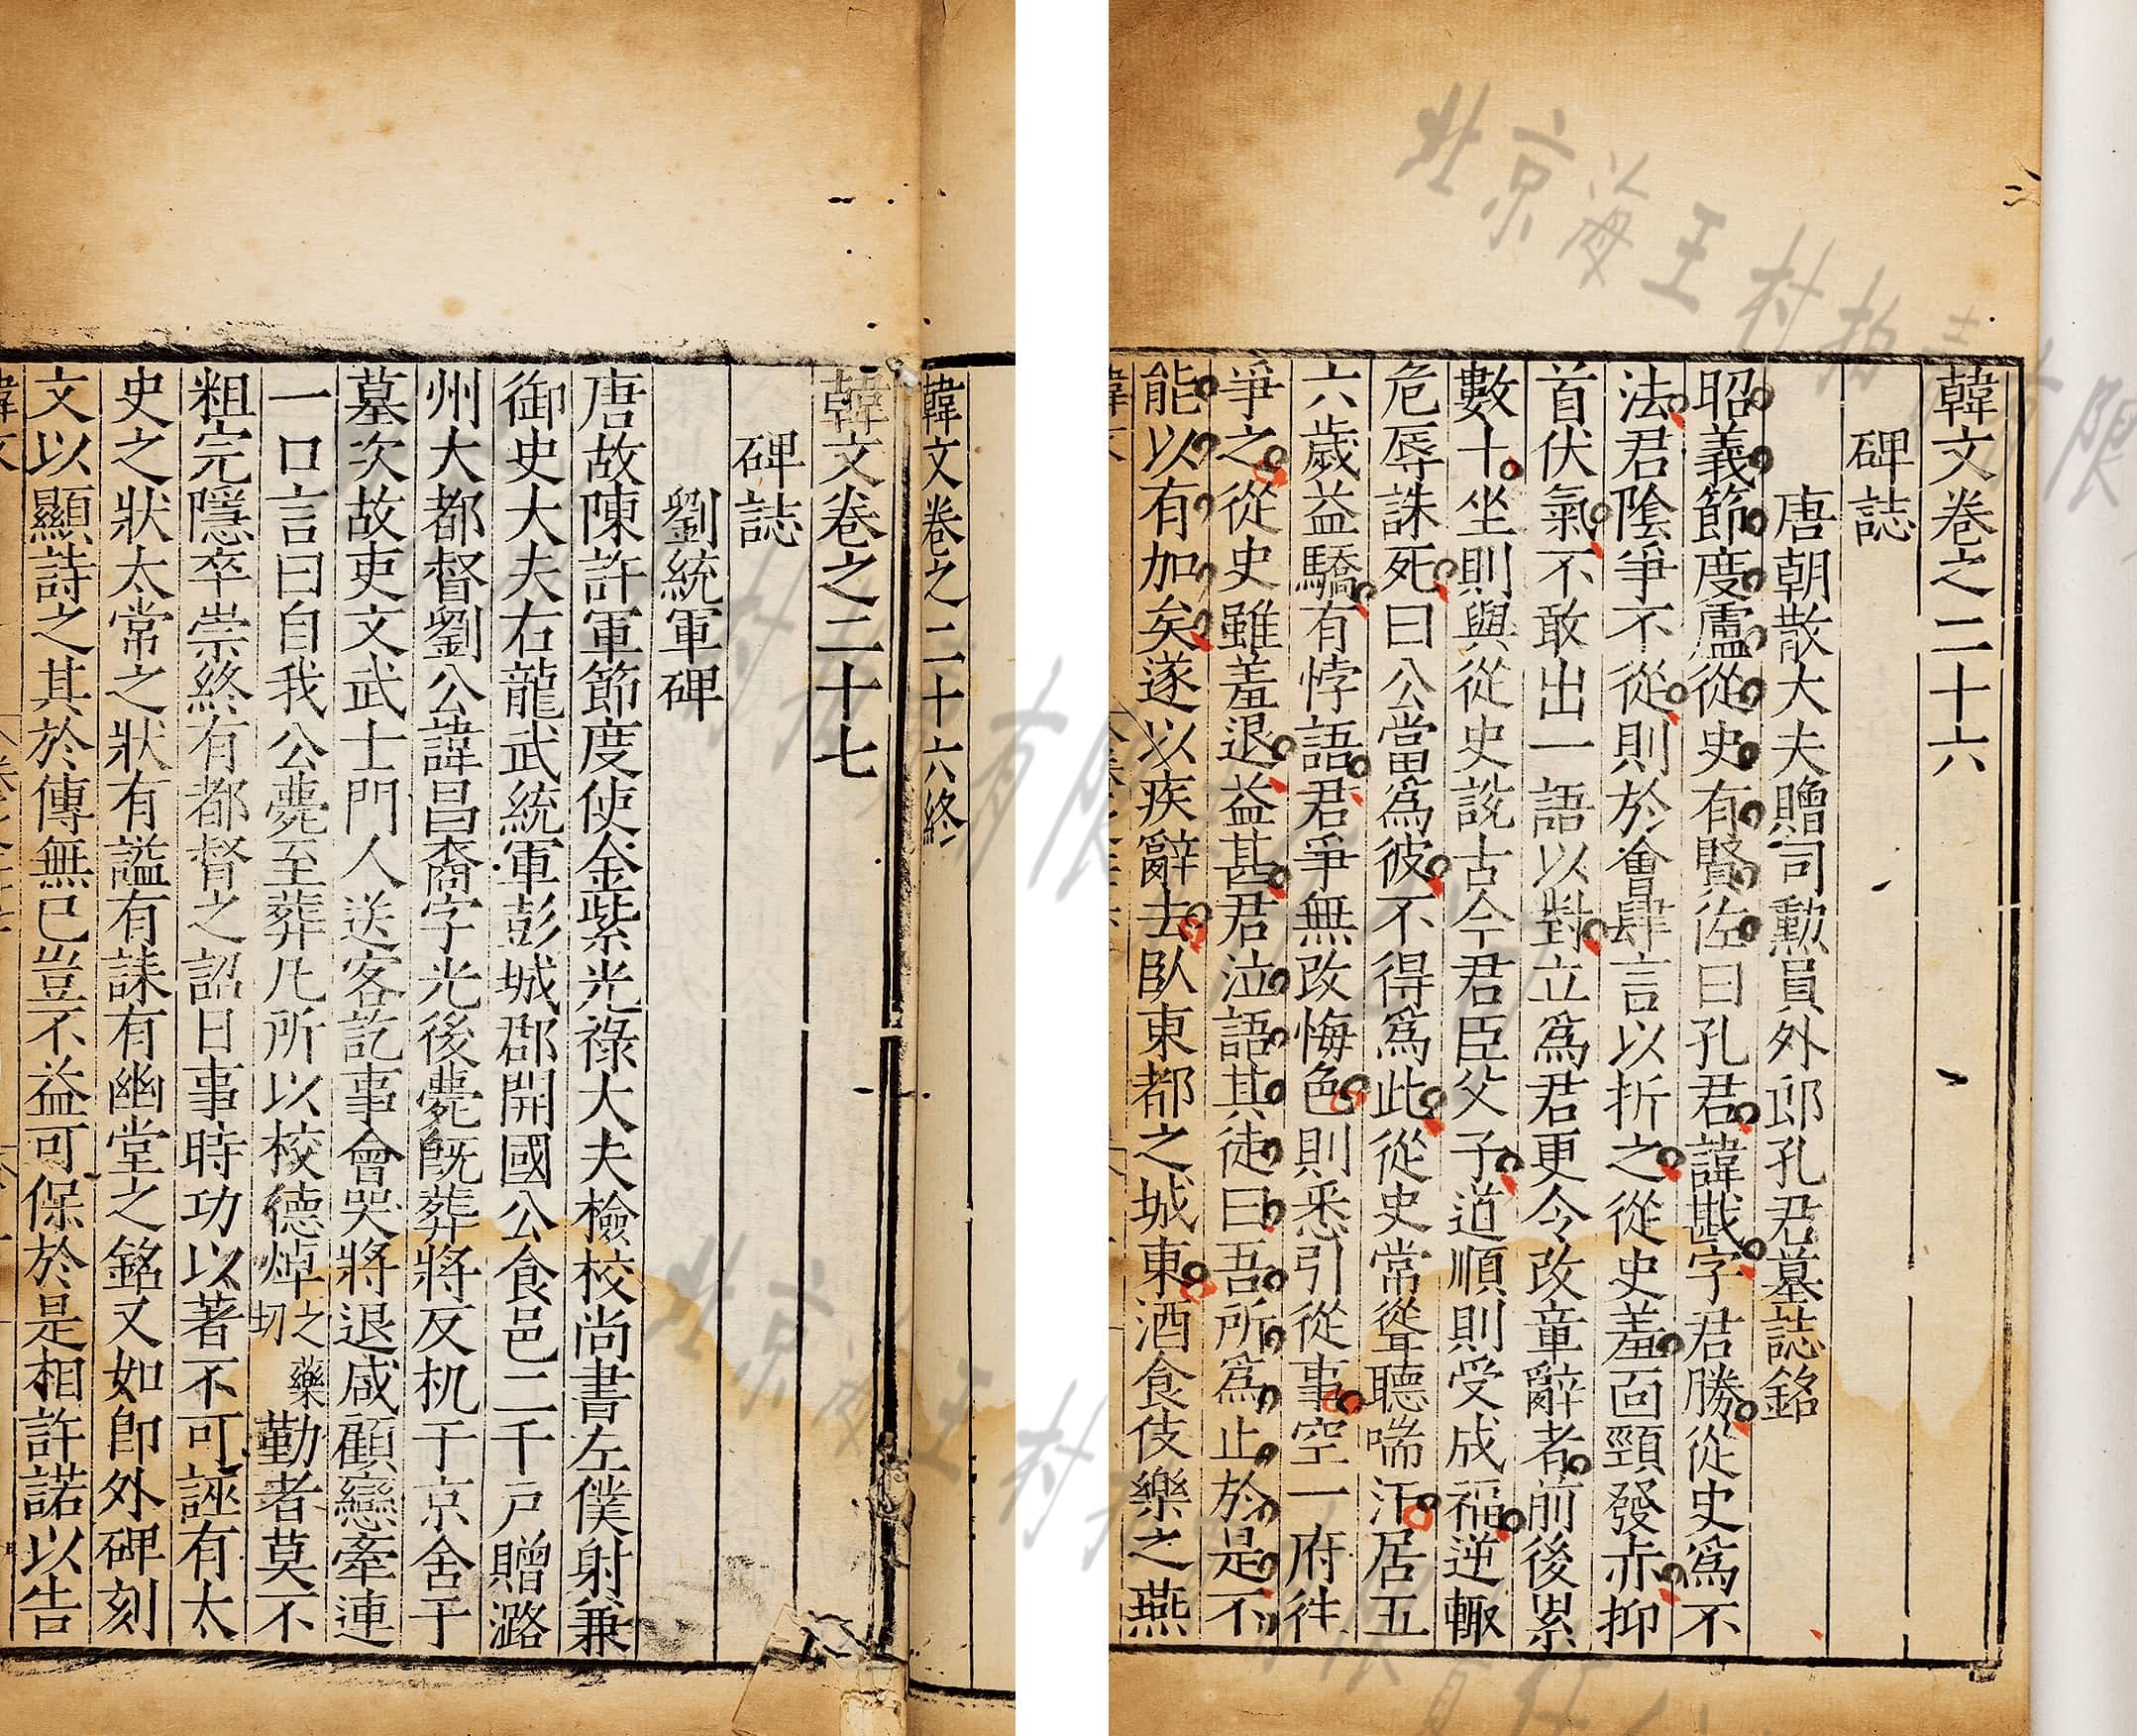 韓文卷之二十六
碑誌
唐朝散大夫贈司勳員外郎孔君墓誌銘
昭義節度盧從史有賢佐曰孔君諱戡字君勝從史爲不
法君陰爭不從則於會肆言以折之從史羞面頸發赤抑
首伏氣不敢出一語以對立爲君更令改章辭者前後累
數十坐則與從史說古今君臣父子道順則受成福逆輒
危辱誅死曰公當爲彼不得爲此從史常聳聽喘汗居五
六歲益驕有悖語君爭無改悔色則悉引從事空一府往
爭之從史雖羞退益甚君泣語其徒曰吾所爲止於是不
能以有加矣遂以疾辭去臥東都之城東酒食伎樂之燕
韓文卷之二十六終
韓文卷之二十七
碑誌
劉統軍碑
唐故陳許軍節度使金紫光祿大夫檢校尚書左僕射兼
御史大夫右龍武統軍彭城郡開國公食邑二千戶贈潞
州大都督劉公諱昌裔字光後薨既葬將反机于京舍于
墓次故吏文武士門人送客訖事會哭將退咸顧戀牽連
一口言曰自我公薨至葬凡所以校德焯之藥切勤者莫不
粗完隱卒崇終有都督之詔日事時功以著不可誣有太
史之狀太常之狀有謚有誄有幽堂之銘又如即外碑刻
文以顯詩之其於傳無已豈不益可保於是相許諾以告
北京海王村拍賣有限